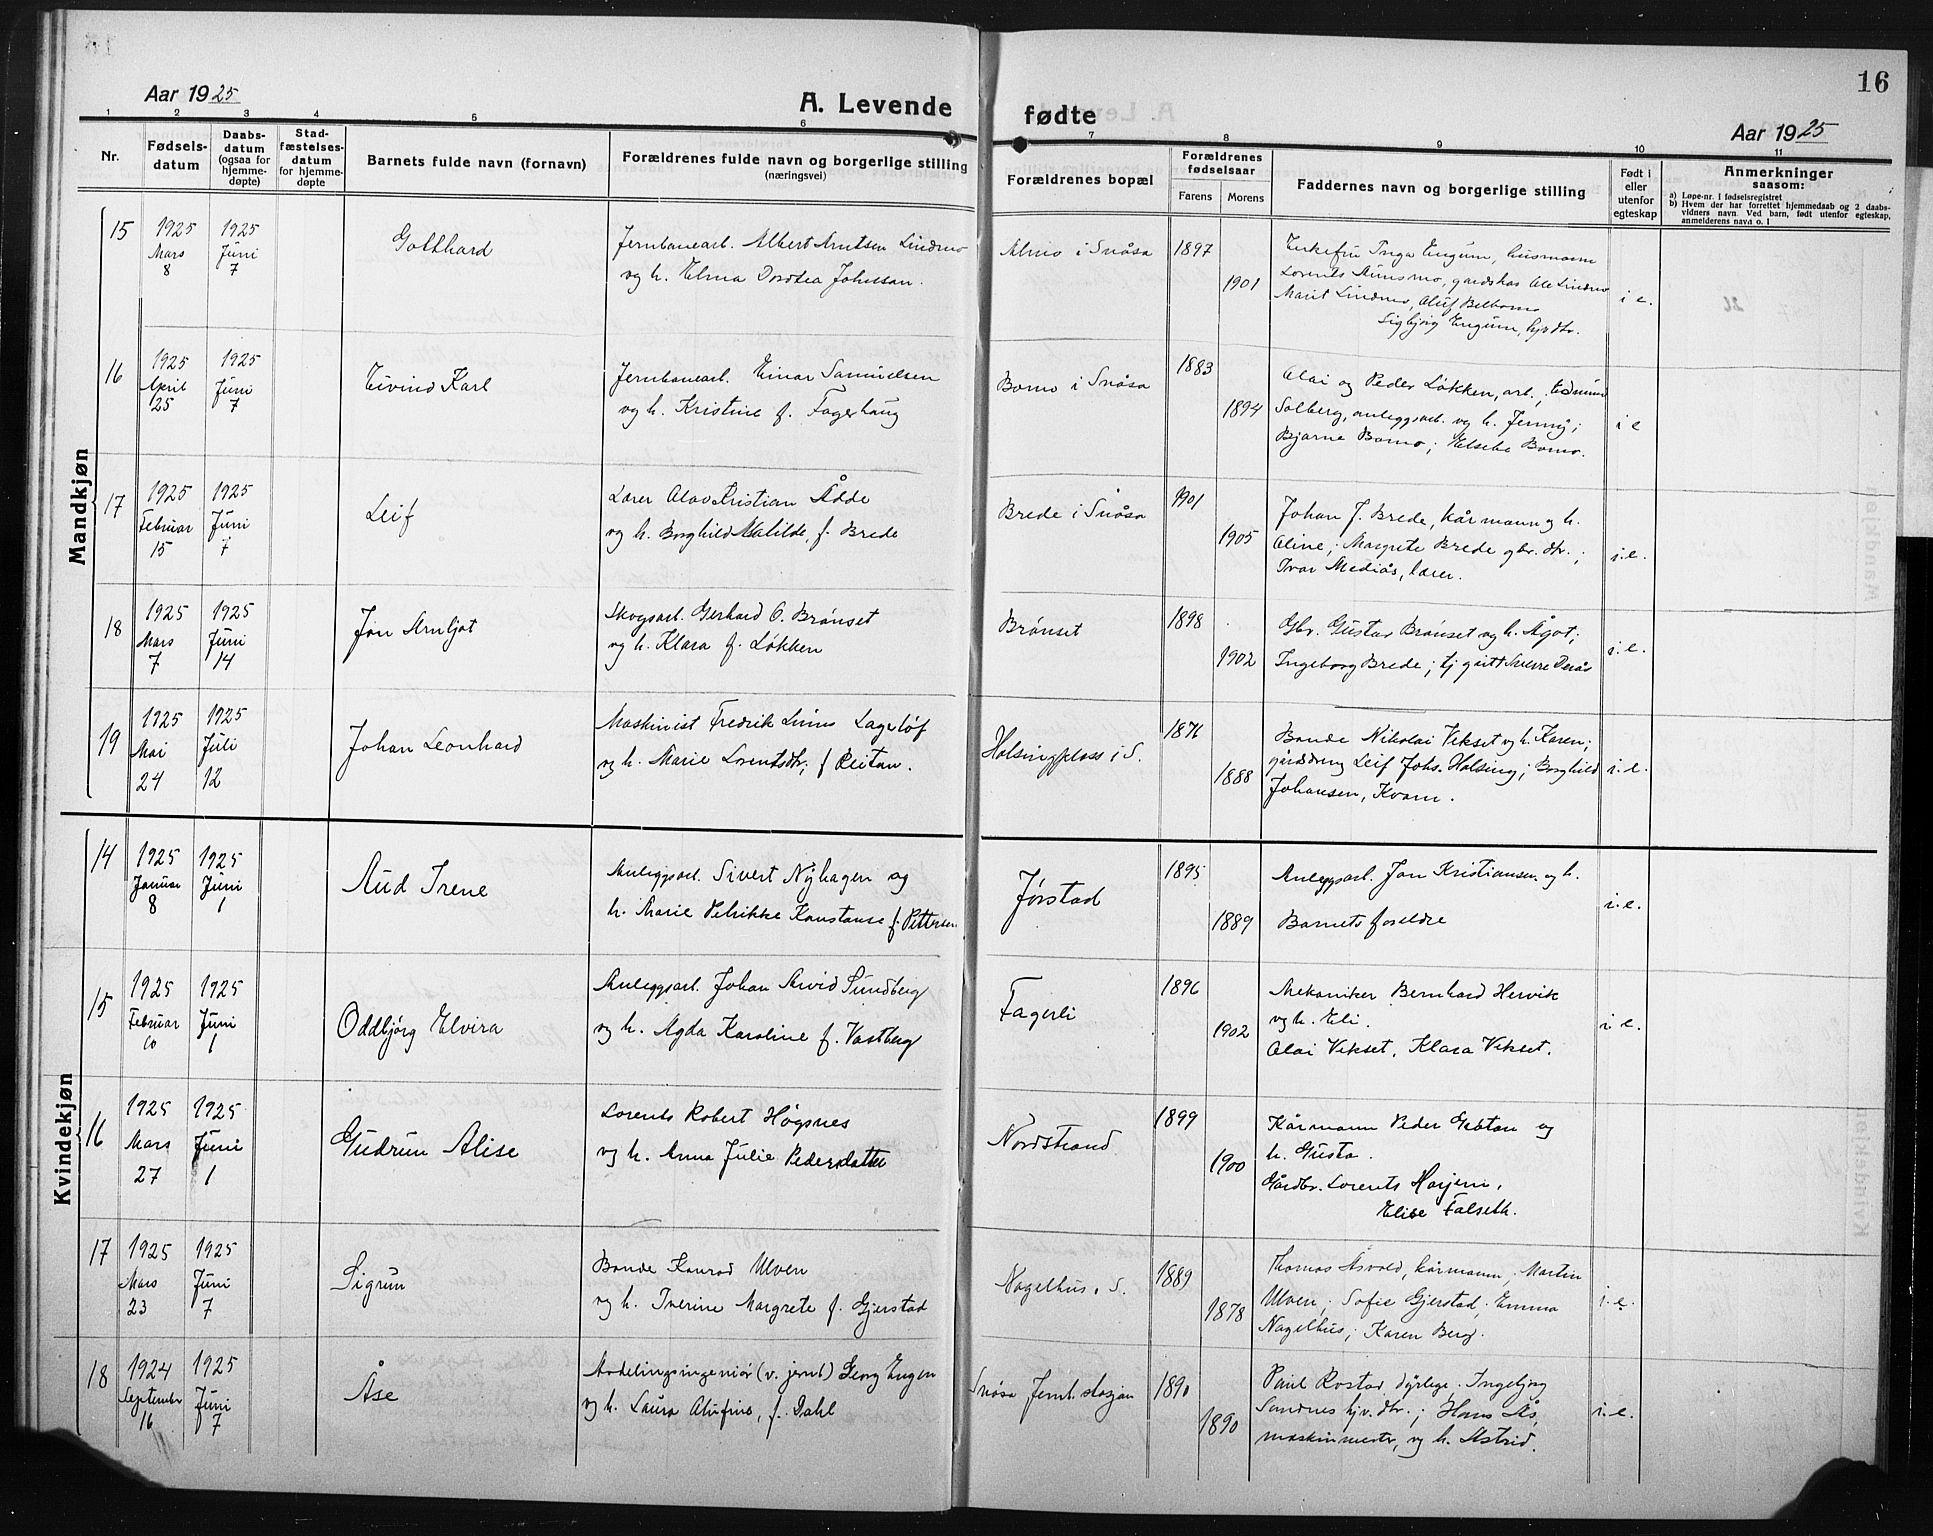 16
Aar 1925
A. Levende fødte
Aar 1925
1 2 3 4 5 6 7 8 9 10 11
Nr.
Fødsels-
datum
Daabs-
datum
(ogsaa for
hjemme-
døpte)
Stad-
fæstelses-
datum
for hjemme-
døpte
Barnets fulde navn (fornavn)
Forældrenes fulde navn og borgerlige stilling
(næringsvei)
Forældrenes bopæl
Forældrenes
fødselsaar
Farens Morens
Faddernes navn og borgerlige stilling
Født i
eller
utenfor
egteskap
Anmerkninger
saasom:
a) Løpe-nr. i fødselsregistret
b) Hvem der har forrettet hjemmedaab og 2 daabs-
vidners navn. Ved barn, født utenfor egteskap,
anmelderens navn o. l
Mandkjøn
15
1925
Mars
8
1925
Juni
7
Gotthard
Jernbanearb. Albert Arntsen Lindmo
og h. Elma Dorotea Johnsen.
Almo i Snåsa
1897
1901
Enkefru Inga Engum, husmann
Lorents Aunsmo, gardskar Ole Lindmo
Marit Lindmo, Oluf Belbomo
Sigbjørg Engum, hjv dtr.
i e.
16
1925
April
25
1925
Juni
7
Eivind Karl
Jernbanearb. Einar Samuelsen
og h. Kristine f. Fagerhaug
Bomo i Snåsa
1883
1894
Olai og Peder Løkken, arb., Edmund
Solberg, anleggsarb. og h. Jenny;
Bjarne Bomo; Elsebe Bomo.
i e
17
1925
Februar
15
1925
Juni
7
Leif
Lærer Olav Kristian Ådde
og h. Borghild Matilde, f. Brede
Brede i Snåsa
1901
1905
Johan J. Brede, kårmann og h.
Oline; Margrete Brede gbr. dtr.;
Ivar Mediås, lærer.
i. e.
18
1925
Mars
7
1925
Juni
14
Jon Arnljot
Skogsarb. Gerhard O. Brønset
og h. Klara f. Løkken
Brønset
1898
1902
Gbr. Gustav Brønset og h. Ågot;
Ingeborg Brede; tj. gutt Sverre Derås
i. e.
19
1925
Mai
24
1925
Juli
12
Johan Leonhard
Maskinist Fredrik Linus Lagerløf
og h. Marie Lorentsdtr; f Reitan.
Holsingplass i S.
1876
1888
Bonde Nikolai Vekset og h. Karen;
gårddreng Leif Johs. Holsing; Borghild
Johansen, Kvam.
i. e.
Kvindekjøn
14
1925
Januar
8
1925
Juni
1
Aud Irene
Anleggsarb. Sivert Nyhagen og
h. Marie Petrikke Konstanse f. Pettersen
Jørstad
1895
1889
Anleggsarb. Jon Kristiansen og h.
Barnets foreldre
i. e.
15
1925
Februar
10
1925
Juni
1
Oddbjørg Elvira
Anleggsarb. Johan Arvid Sundberg
og h. Agda Karoline f. Vastberg
Fagerli
1896
1902
Mekaniker Bernhard Hervik
og h. Eli.
Olai Vekset, Klara Vekset.
i. e.
16
1925
Mars
27
1925
Juni
1
Gudrun Alise
Lorents Robert Høgsnes
og h. Anna Julie Pedersdatter
Nordstrand
1899
1900
Kårmann Peder og
h. Gusta.
Gårdbr. Lorents Horjem,
Elise Falseth.
17
1925
Mars
23
1925
Juni
7
Sigrun
Bonde Konrad Ulven
og h. Iverine Margrete f. Gjerstad
Nagelhus. S.
1889
1878
Thomas Åsvold, kårmann; Martin
Ulven; Sofie Gjerstad; Emma
Nagelhus; Karen Berg.
i. e.
18
1924
September
16
1925
Juni
7
Åse
Avdelingsingeniør (v. jernb) Georg Engen
og h. Laura Alufine, f. Dahl
Snåsa Jernb. stasjon
1890
1890
Paul Rostad, dyrlege; Ingebjørg
Sandnes hjv. dtr.; Hans Ås,
maskinmester, og h. Astrid.
i. e.